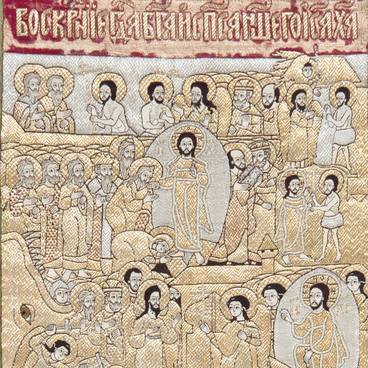 ВОСКРНІЕ ГА БГА И СПСА НШЕГО ІСА ХА